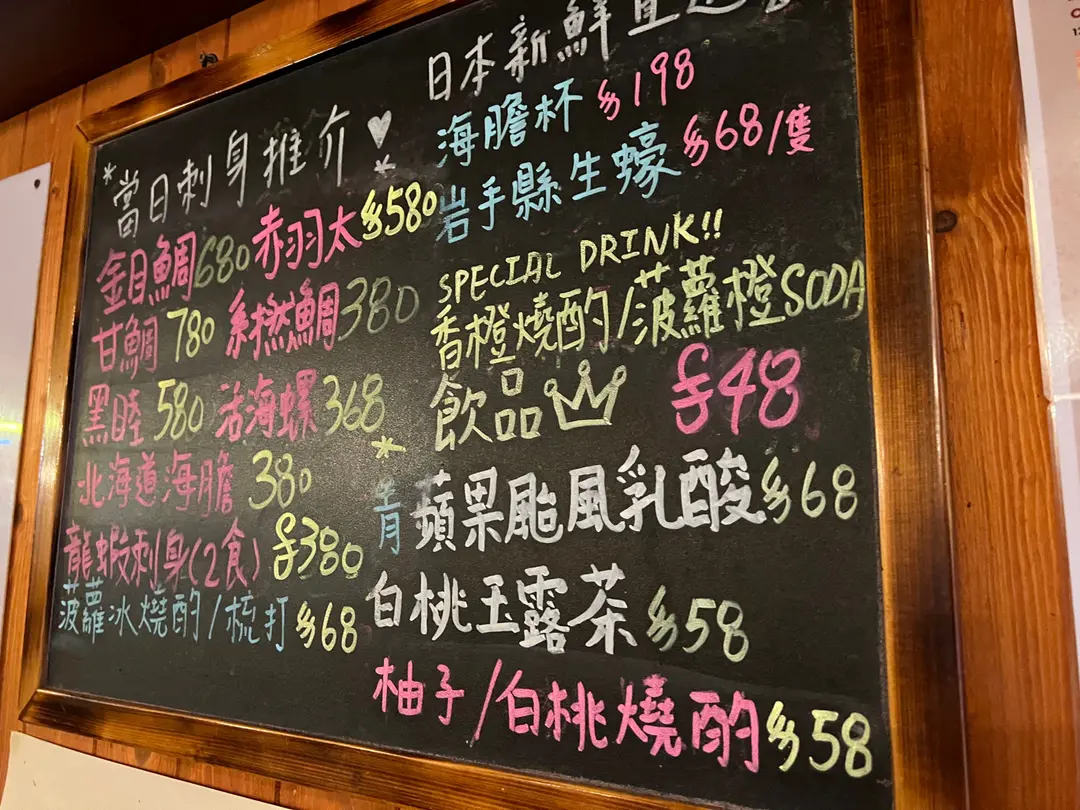 *當日刺身推介♡*
金目鯛680 赤羽太$580
甘鯛 780 剎撚鯛380
黑睦 580 活海螺368
北海道海膽 380
龍蝦刺身(2食) $380
菠蘿冰燒酌/梳打 $68
日本新鮮直送
海膽杯 $198
岩手縣生蠔 $68/隻
SPECIAL DRINK!!
香橙燒酌/菠蘿橙SODA
飲品 $48
*青蘋果颱風乳酸$68
白桃玉露茶$58
柚子/白桃燒酌$58